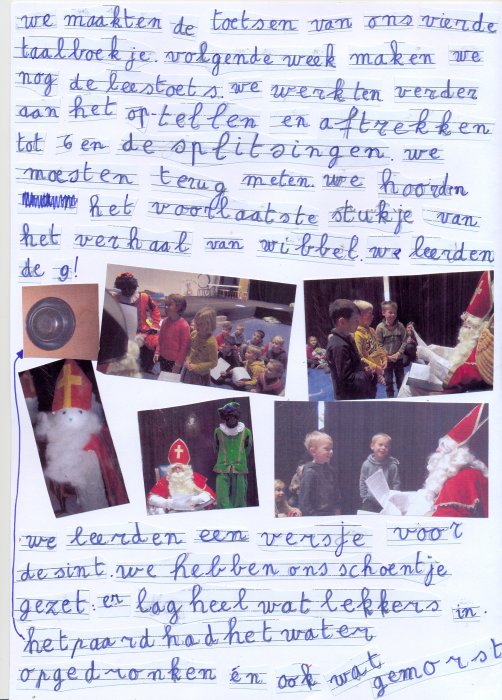 we maakten de toetsen van ons vierde
taalboekje. volgende week maken we
nog de leestoets. we werkten verder
aan het op-tellen en aftrekken
tot 6 en de splitsingen. we
moesten terug meten. we hoorden
het voorlaatste stukje van
het verhaal van wibbel. we leerden
de g!
we leerden een versje voor
de sint. we hebben ons schoentje
gezet. er lag heel wat lekkers in.
het paard had het water
opgedronken én ook wat gemorst